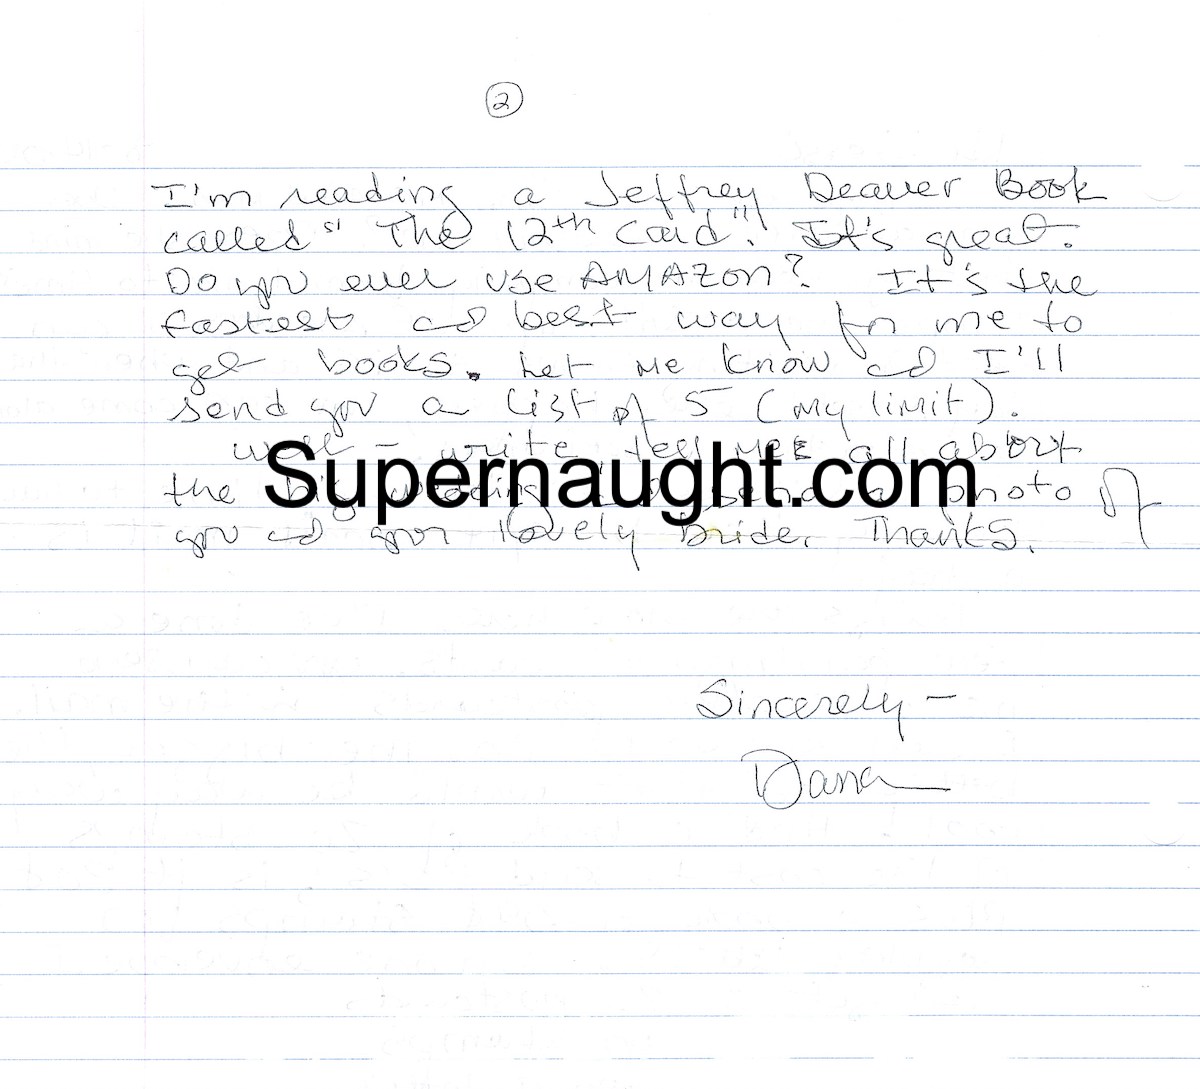 2
I'm reading a Jeffrey Deaver Book
called "The 12th Card". It's great.
Do you ever use AMAZON? It's the
fastest and best way for me to
get books. Let me know and I'll
send you a list of 5 (my limit).
Well - write, tell me all about
the big wedding and send a photo of
you and your lovely bride. Thanks.
Supernaught.com
Sincerely -
Dana